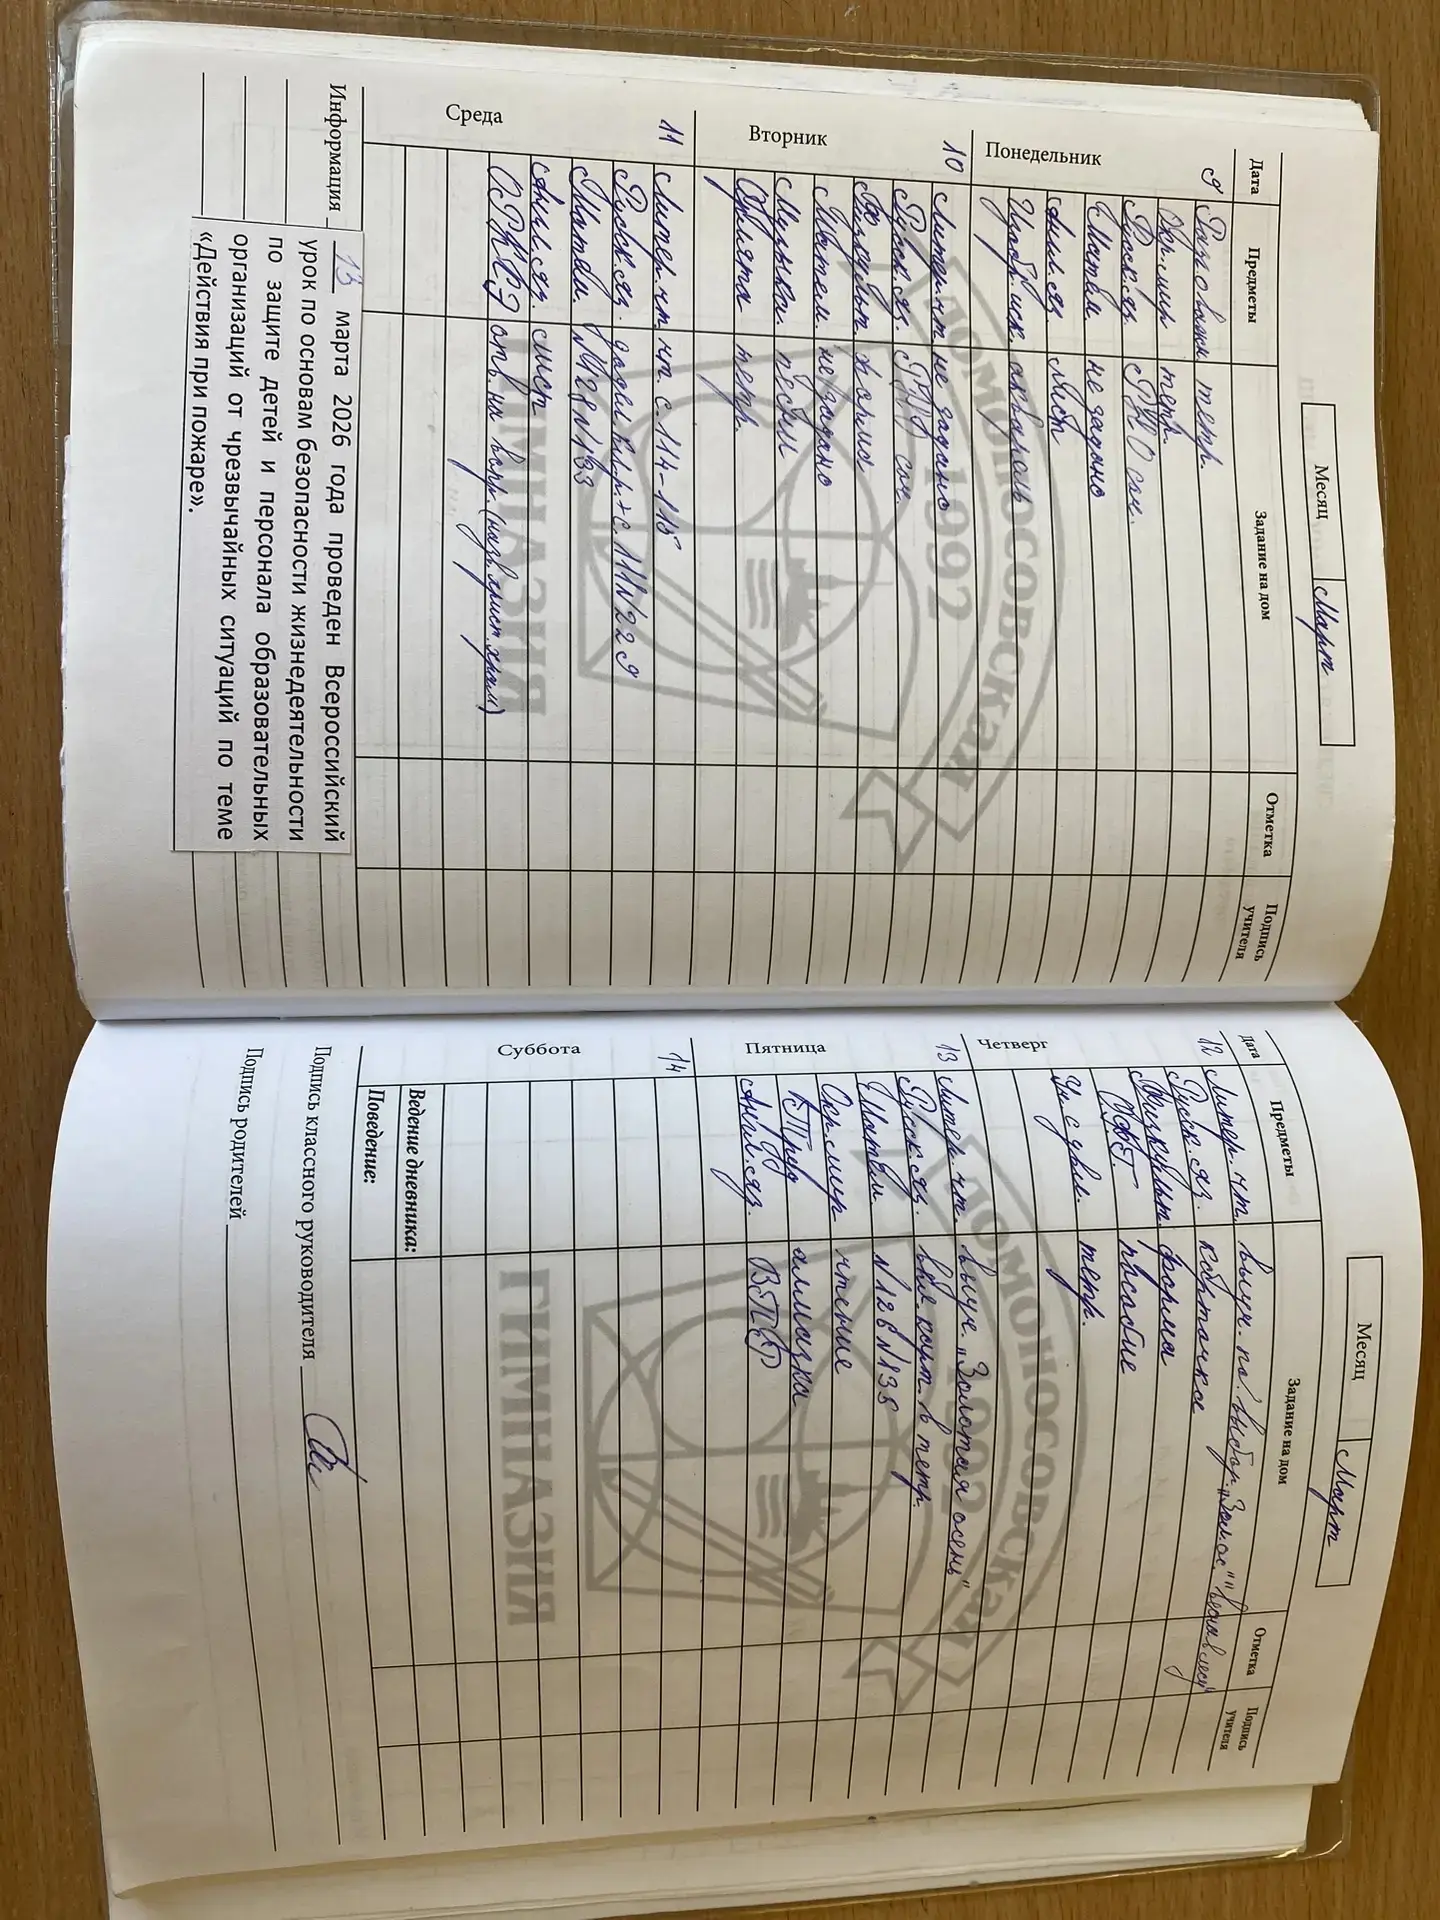 Месяц Март
Дата Предметы Задание на дом Отметка Подпись учителя
Понедельник
9 Разг.оважн тетр.
Окр.мир тетр.
Русск.яз. сл.
Матем не задано
Англ.яз Лист
Изобр.иск. акварель
Вторник
10 Литер.чт не задано
Русск.яз. сл.
Физкульт. форма
Матем. не задано
Музыка. песни
тетр.
Среда
11 Литер.чт. чт. с. 114-115
Русск.яз. с. 111 № 229
Матем. № 128 № 133
Англ.яз. лист
ОРКСЭ отв. на вопр. (назв. христ. храм)
Информация
13 марта 2026 года проведен Всероссийский
урок по основам безопасности жизнедеятельности
по защите детей и персонала образовательных
организаций от чрезвычайных ситуаций по теме
«Действия при пожаре».
ЛОМОНОСОВСКАЯ
1992
ГИМНАЗИЯ
Месяц Март
Дата Предметы Задание на дом Отметка Подпись учителя
Четверг
12 Литер.чт. выуч. по выбор. "весна в лесу"
Русск.яз. карточка
Физкульт. форма
пособие
тетр.
Пятница
13 Литер.чт. выуч. „Золотая осень"
Русск.яз. карт. в тетр.
Матем. № 126 № 135
Окр.мир чтение
алмазка
Англ.яз.
Суббота
14
Ведение дневника:
Поведение:
Подпись классного руководителя
Подпись родителей
ЛОМОНОСОВСКАЯ
1992
ГИМНАЗИЯ